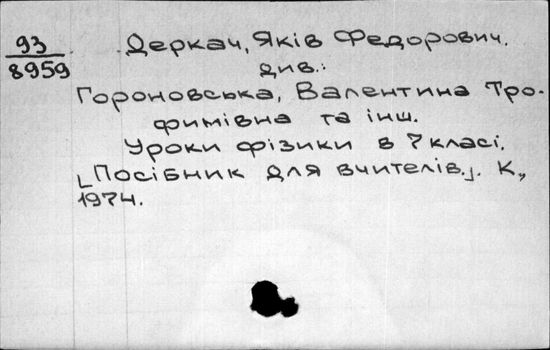 93
8959
Деркач, Яків Федорович.
див.:
Гороновська, Валентина Тро-
фимівна та інш.
Уроки фізики в 7 класі.
[Посібник для вчителів.]. К.,
1974.